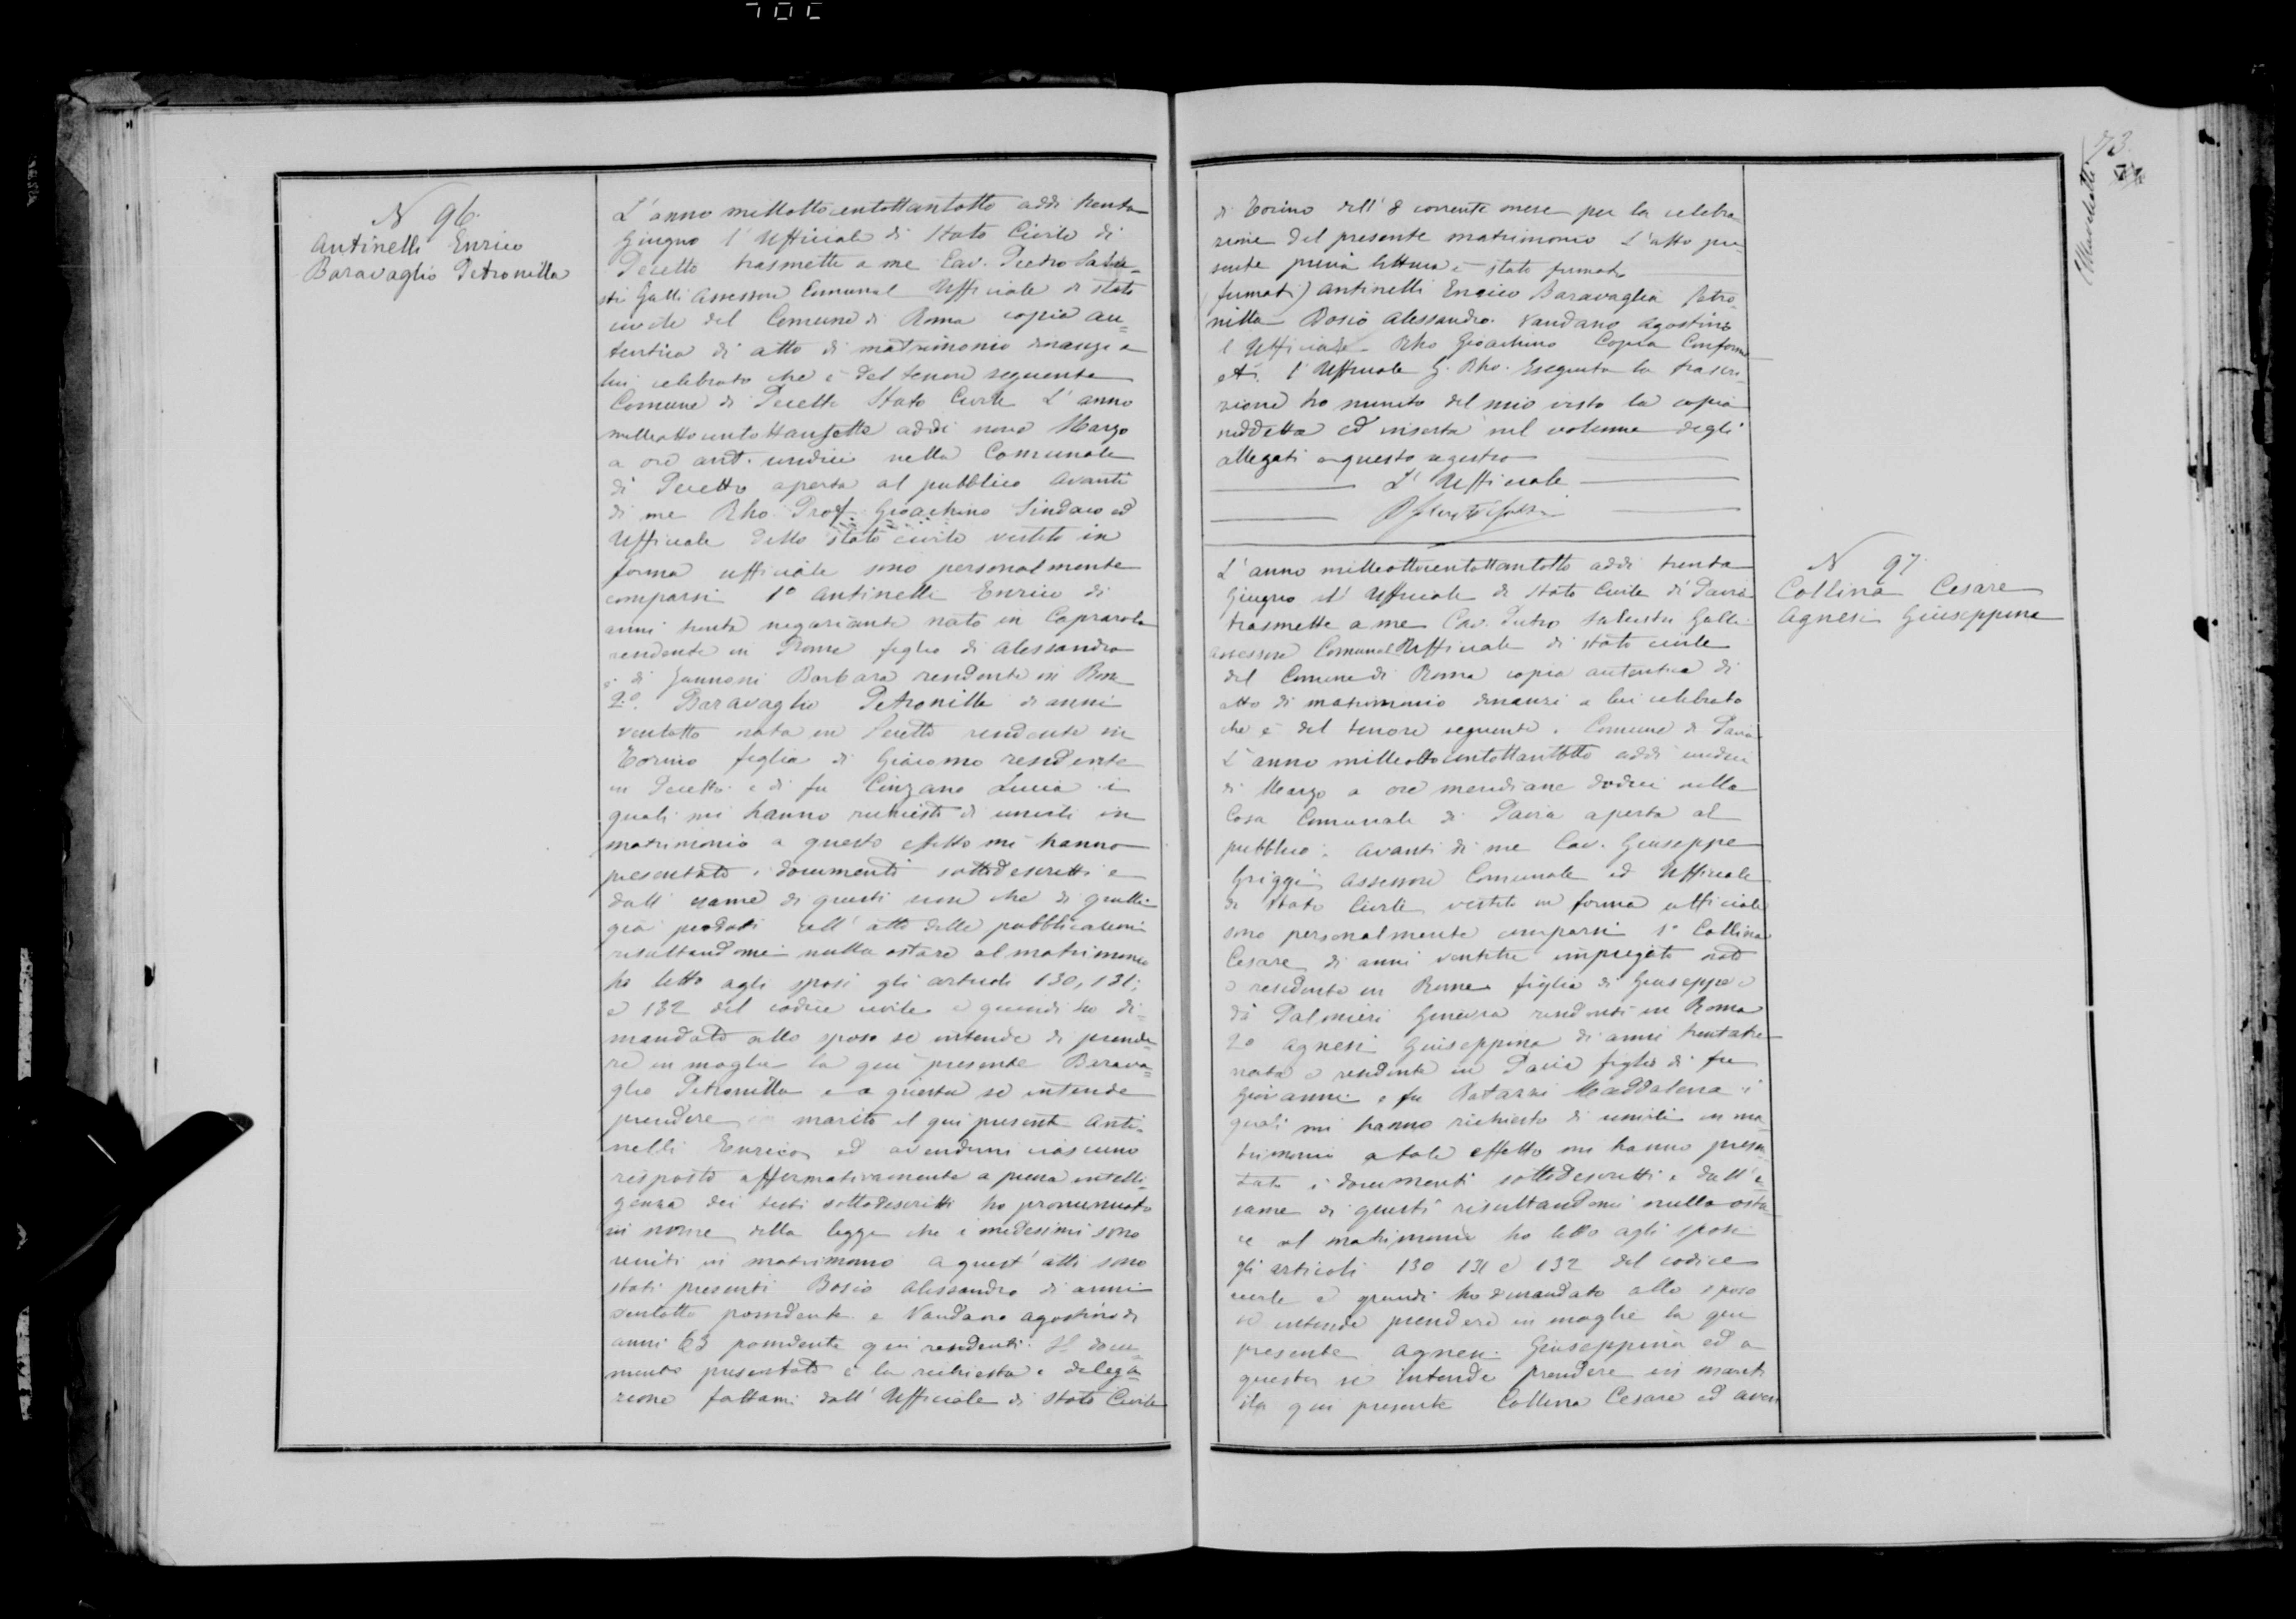 73.
N 96.
Antinelli Enrico
Baravaglio Petronilla
L'anno milleottocentottantotto addì trenta
Giugno l'Ufficiale di Stato Civile di
Pecetto trasmette a me Cav. Pietro Salu=
sti Galli Assessore Comunal Ufficiale di stato
civile del Comune di Roma copia au=
tentica di atto di matrimonio dinanzi a
lui celebrato che è del tenore seguente
Comune di Pecetto Stato Civile L'anno
milleottocentottantotto addì nove Marzo
a ore ant. undici nella Comunale
di Pecetto aperta al pubblico Avanti
di me Rho Prof. Gioachino Sindaco ed
Ufficiale dello stato civile vestito in
forma ufficiale sono personalmente
comparsi 1° Antinelli Enrico di
anni trenta negoziante nato in Caprarola
residente in Roma figlio di Alessandro
e di Gannoni Barbara residente in Roma
2°. Baravaglio Petronilla di anni
ventotto nata in Pecetto residente in
Torino figlia di Giacomo residente
in Pecetto e di fu Cinzano Lucia i
quali mi hanno richiesto di unirli in
matrimonio a questo effetto mi hanno
presentato i documenti sottodescritti e
dall'esame di questi non che di quelli
già prodotti all'atto delle pubblicazioni
risultandomi nulla ostare al matrimonio
ho letto agli sposi gli articoli 130, 131,
e 132 del codice civile e quindi ho di=
mandato allo sposo se intende di prende=
re in moglie la qui presente Barava=
glio Petronilla e a questa se intende
prendere in marito il qui presente Anti=
nelli Enrico ed avendomi ciascuno
risposto affermativamente a piena intelli=
genza dei testi sottodescritti ho pronunziato
in nome della legge che i medesimi sono
uniti in matrimonio a quest'atto sono
stati presenti Bosio Alessandro di anni
ventotto possidente e Vaudano Agostino di
anni 63 possidente qui residenti. Il docu=
mento presentato è la richiesta e delega=
zione fattami dall'Ufficiale di Stato Civile
di Torino dell'8 corrente mese per la celebra=
zione del presente matrimonio L'atto pre
sente previa lettura è stato firmato
(firmati) Antinelli Enrico Baravaglia Petro=
nilla Bosio Alessandro. Vaudano Agostino
l'Ufficiale Rho Gioachino Copia Conforme
etc. l'Ufficiale G. Rho. Eseguita la trascri=
zione ho munito del mio visto la copia
suddetta ed inserta nel volume degli
allegati a questo registro
L'Ufficiale
N 97
Collina Cesare
Agnesi Giuseppina
L'anno milleottocentottantotto addì trenta
Giugno l'Ufficiale di Stato Civile di Pavia
trasmette a me Cav. Pietro Salusti Galli
Assessore Comunal Ufficiale di stato civile
del Comune di Roma copia autentica di
atto di matrimonio dinanzi a lui celebrato
che è del tenore seguente. Comune di Pavia
L'anno milleottocentottantotto addì undici
di Marzo a ore meridiane dodici nella
Casa Comunale di Pavia aperta al
pubblico. Avanti di me Cav. Giuseppe
Griggi Assessore Comunale ed Ufficiale
di Stato Civile vestito in forma ufficiale
sono personalmente comparsi 1° Collina
Cesare di anni ventitre impiegato nato
e residente in Roma figlio di Giuseppe e
di Palmieri Ginevra residenti in Roma
2° Agnesi Giuseppina di anni trentatre
nata e residente in Pavia figlia di fu
Giovanni e fu Maddalena i
quali mi hanno richiesto di unirli in ma=
trimonio a tale effetto mi hanno presen=
tato i documenti sottodescritti e dall'e=
same di questi risultandomi nulla osta=
re al matrimonio ho letto agli sposi
gli articoli 130 131 e 132 del codice
civile e quindi ho dimandato allo sposo
se intende prendere in moglie la qui
presente Agnesi Giuseppina ed a
questa se intende prendere in marito
il qui presente Collina Cesare ed aven